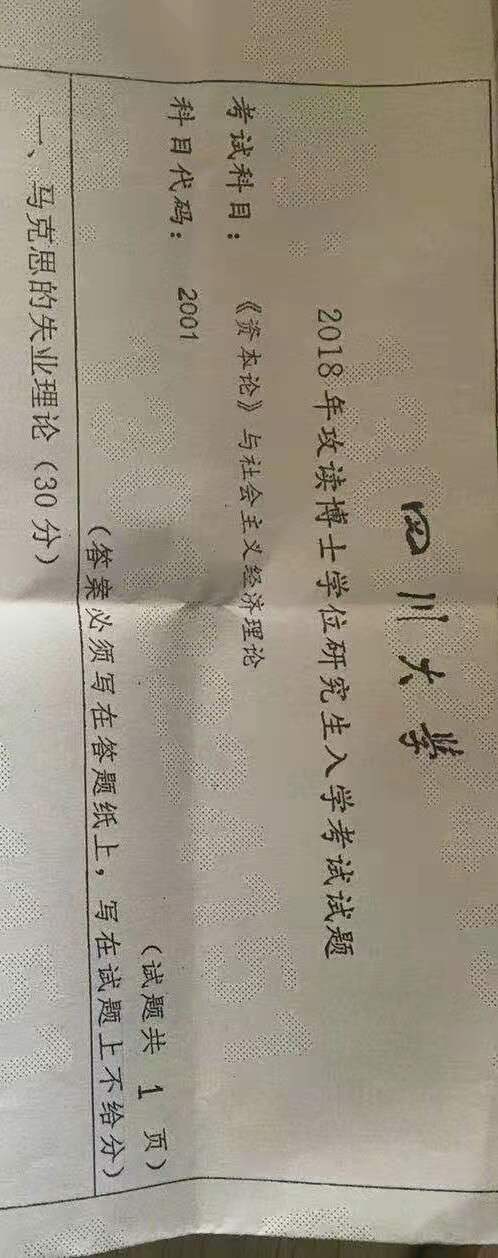 四川大学
2018年攻读博士学位研究生入学考试试题
考试科目：《资本论》与社会主义经济理论
科目代码：2001
（试题共 1 页）
（答案必须写在答题纸上，写在试题上不给分）
一、马克思的失业理论（30分）